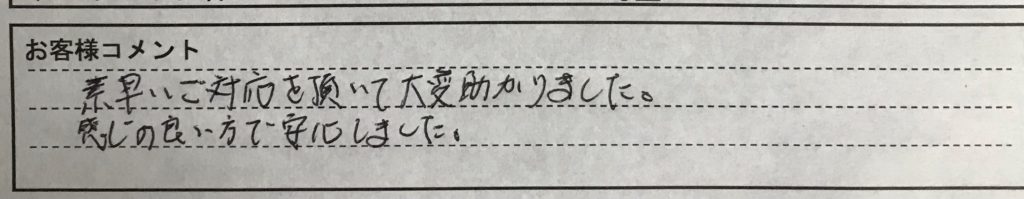 お客様コメント
素早いご対応を頂いて大変助かりました。
感じの良い方で安心しました。